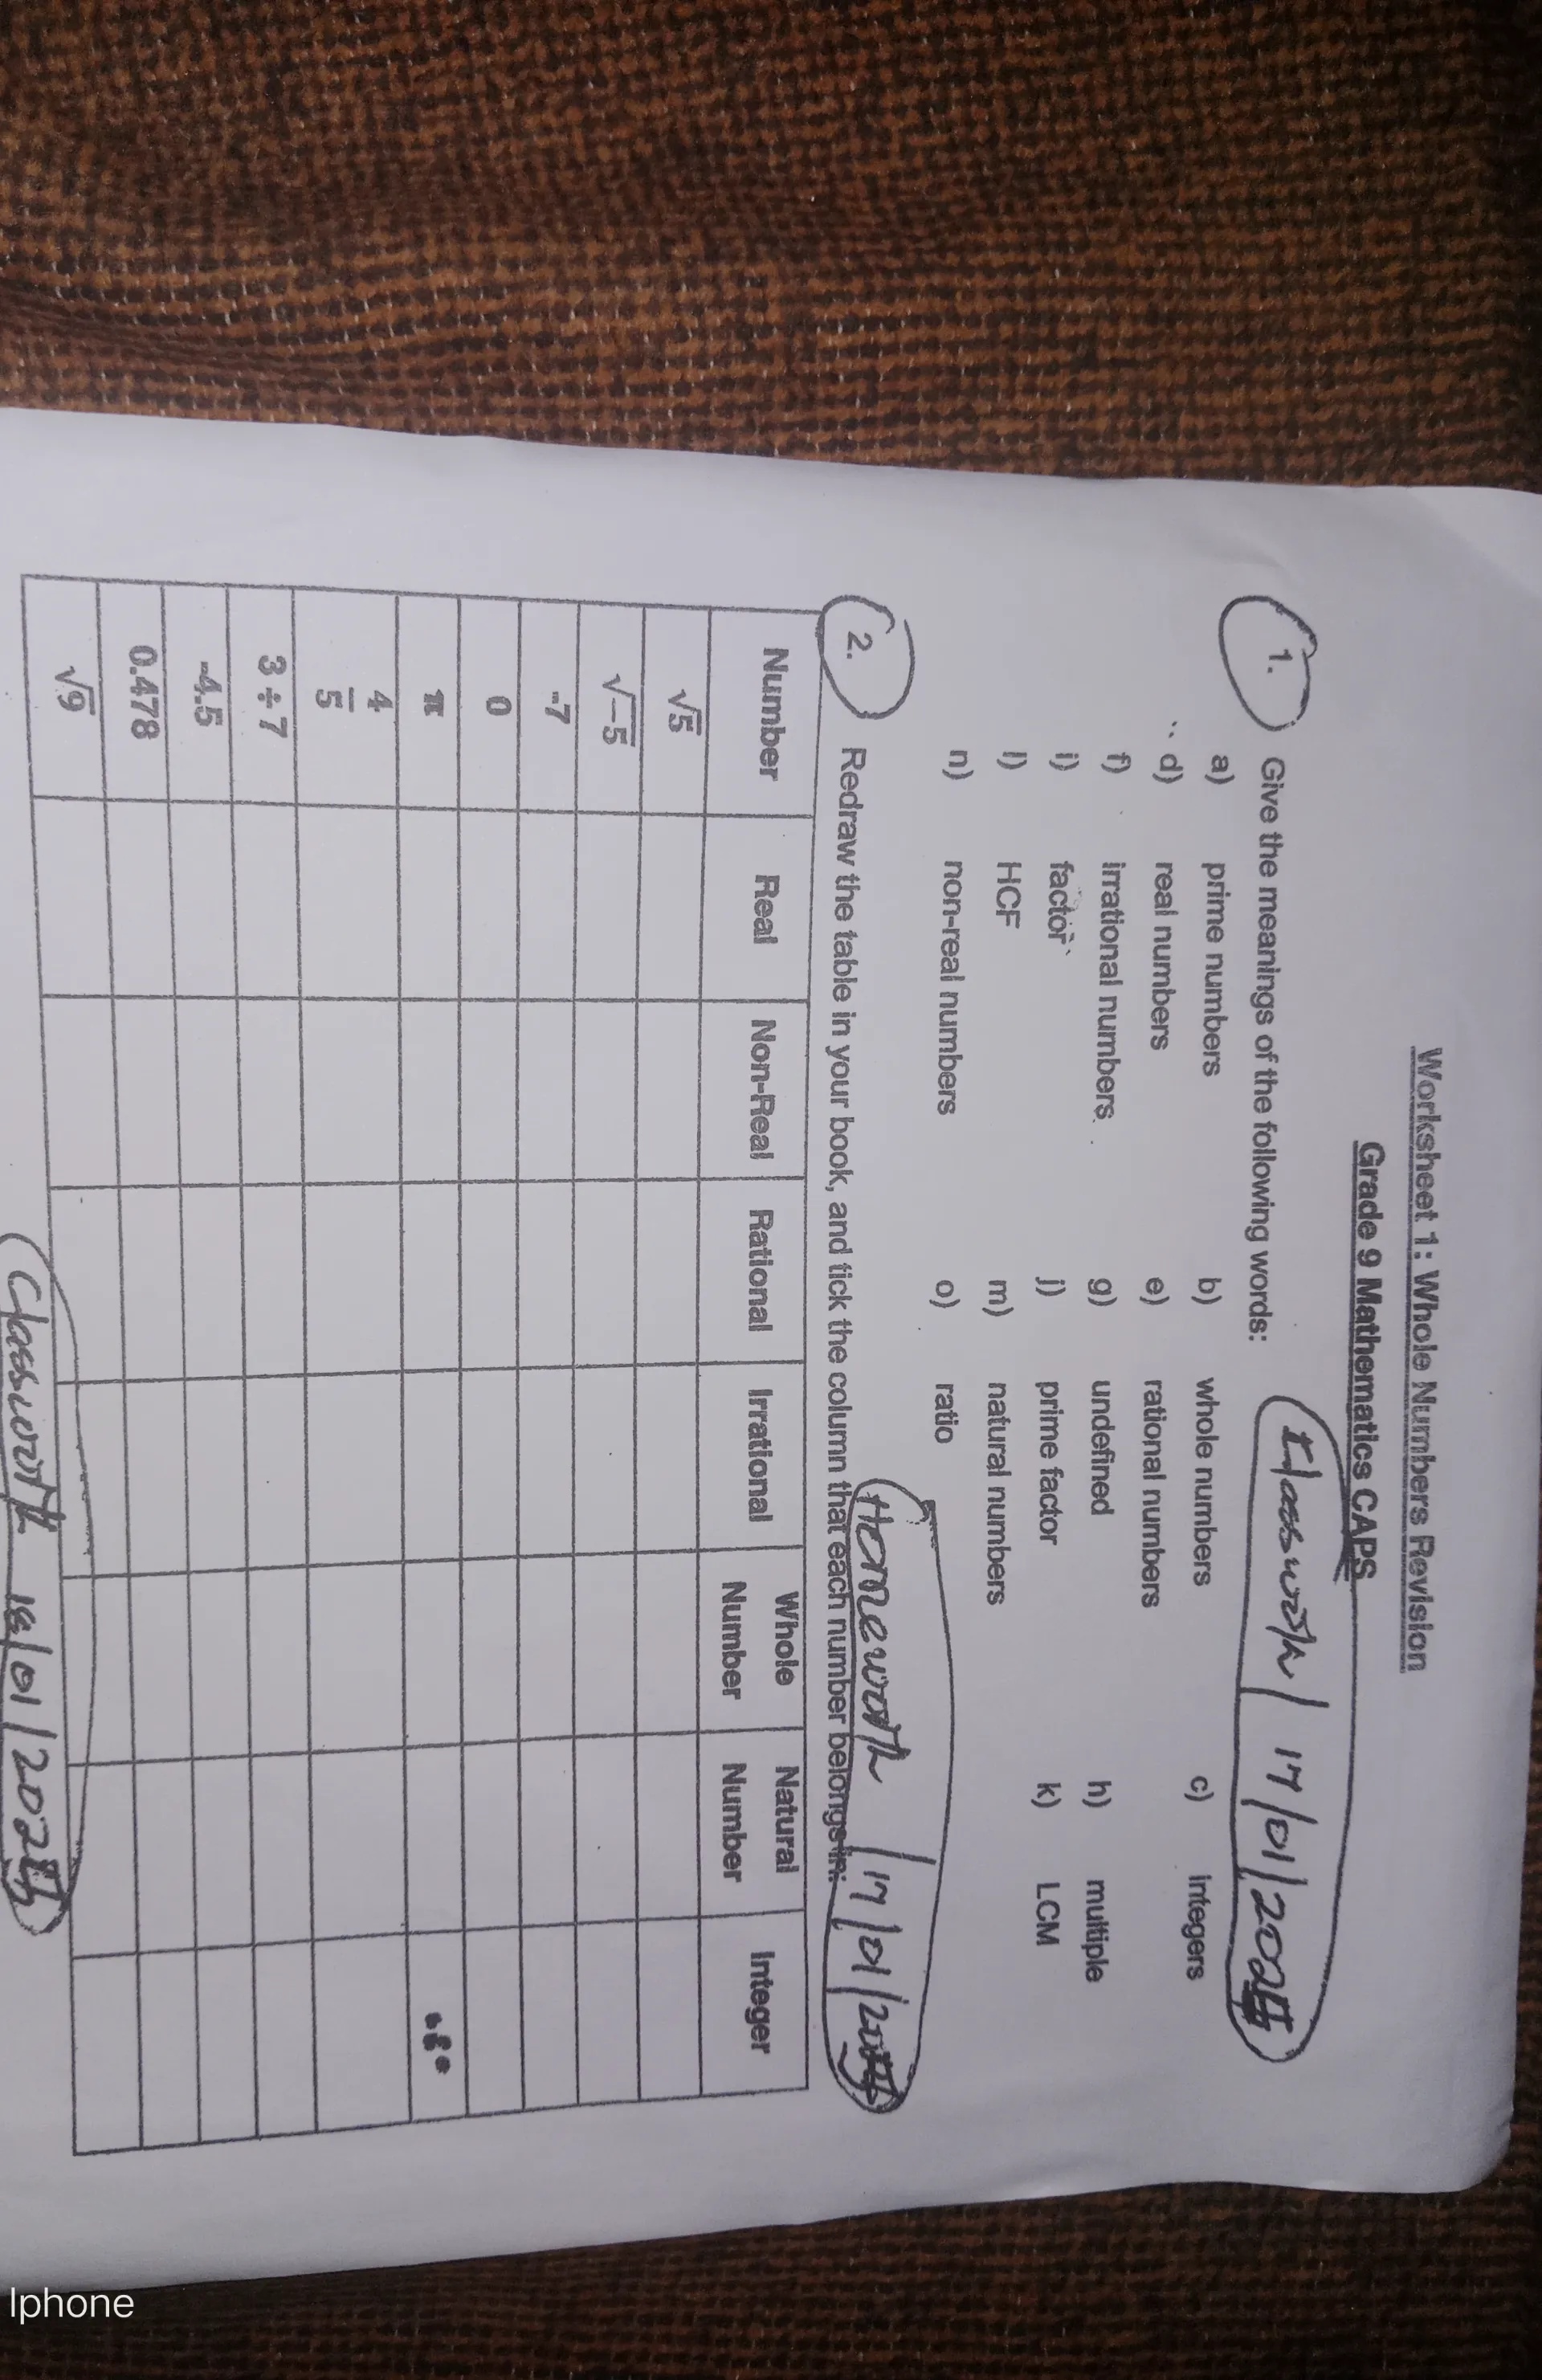 Worksheet 1: Whole Numbers Revision
Grade 9 Mathematics CAPS
Classwork / 17/01/202
1. Give the meanings of the following words:
a) prime numbers b) whole numbers c) integers
d) real numbers e) rational numbers
f) irrational numbers g) undefined h) multiple
i) factor j) prime factor k) LCM
l) HCF m) natural numbers
n) non-real numbers o) ratio
Homework / 17/01/
2. Redraw the table in your book, and tick the column that each number belongs in:
Number Real Non-Real Rational Irrational Whole Number Natural Number Integer
√5
√−5
-7
0
π
4/5
3 ÷ 7
-4.5
0.478
√9
Classwork /01/202
Iphone